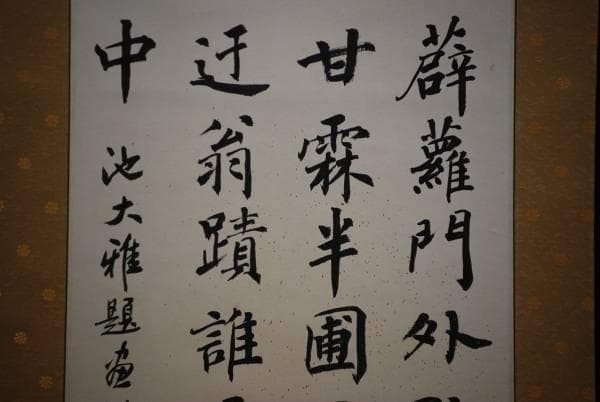 薜蘿門外
甘霖半圃
迂翁蹟誰
中 池大雅題画